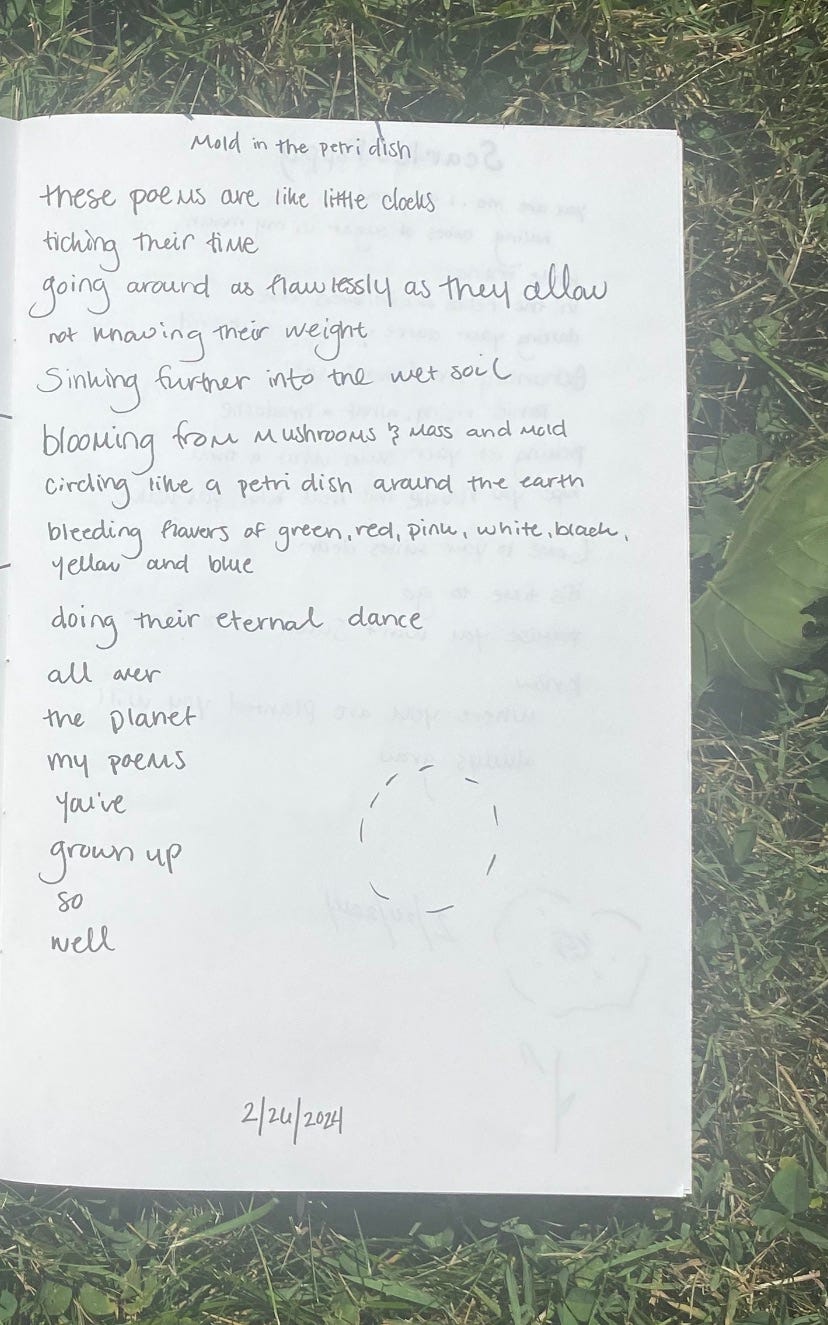 Mold in the petri dish
these poems are like little clocks
ticking their time
going around as flawlessly as they allow
not knowing their weight
Sinking further into the wet soil
blooming from mushrooms & moss and mold
circling like a petri dish around the earth
bleeding flavers of green, red, pink, white, black,
yellow and blue
doing their eternal dance
all over
the planet
my poems
you've
grown up
so
well
2/24/2024